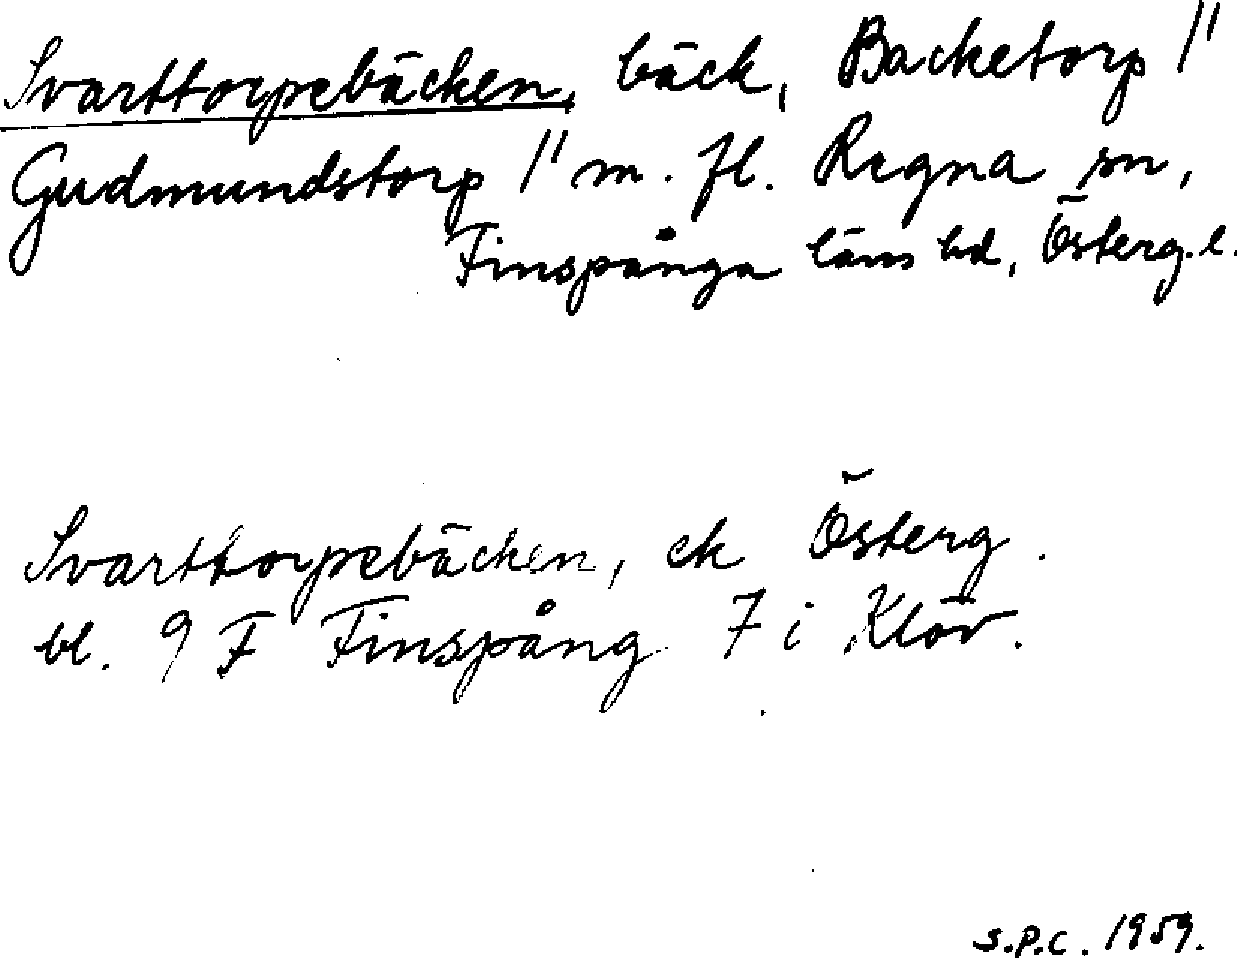 Svarttorpebäcken, bäck, Backetorp 1"
Gudmundstorp 1" m. fl. Regna sn,
Finspånga läns hd, Österg. l.
Svarttorpebäcken, ek Österg.
bl. 9 F Finspång 7 i Klöv.
S.P.C. 1959.